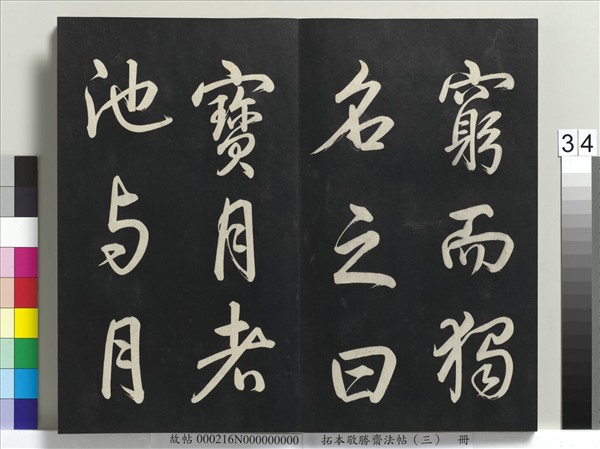 窮而獨
名之曰
寶月者
池与月
34
故帖 000216N000000000 拓本敬勝齋法帖(三) 冊